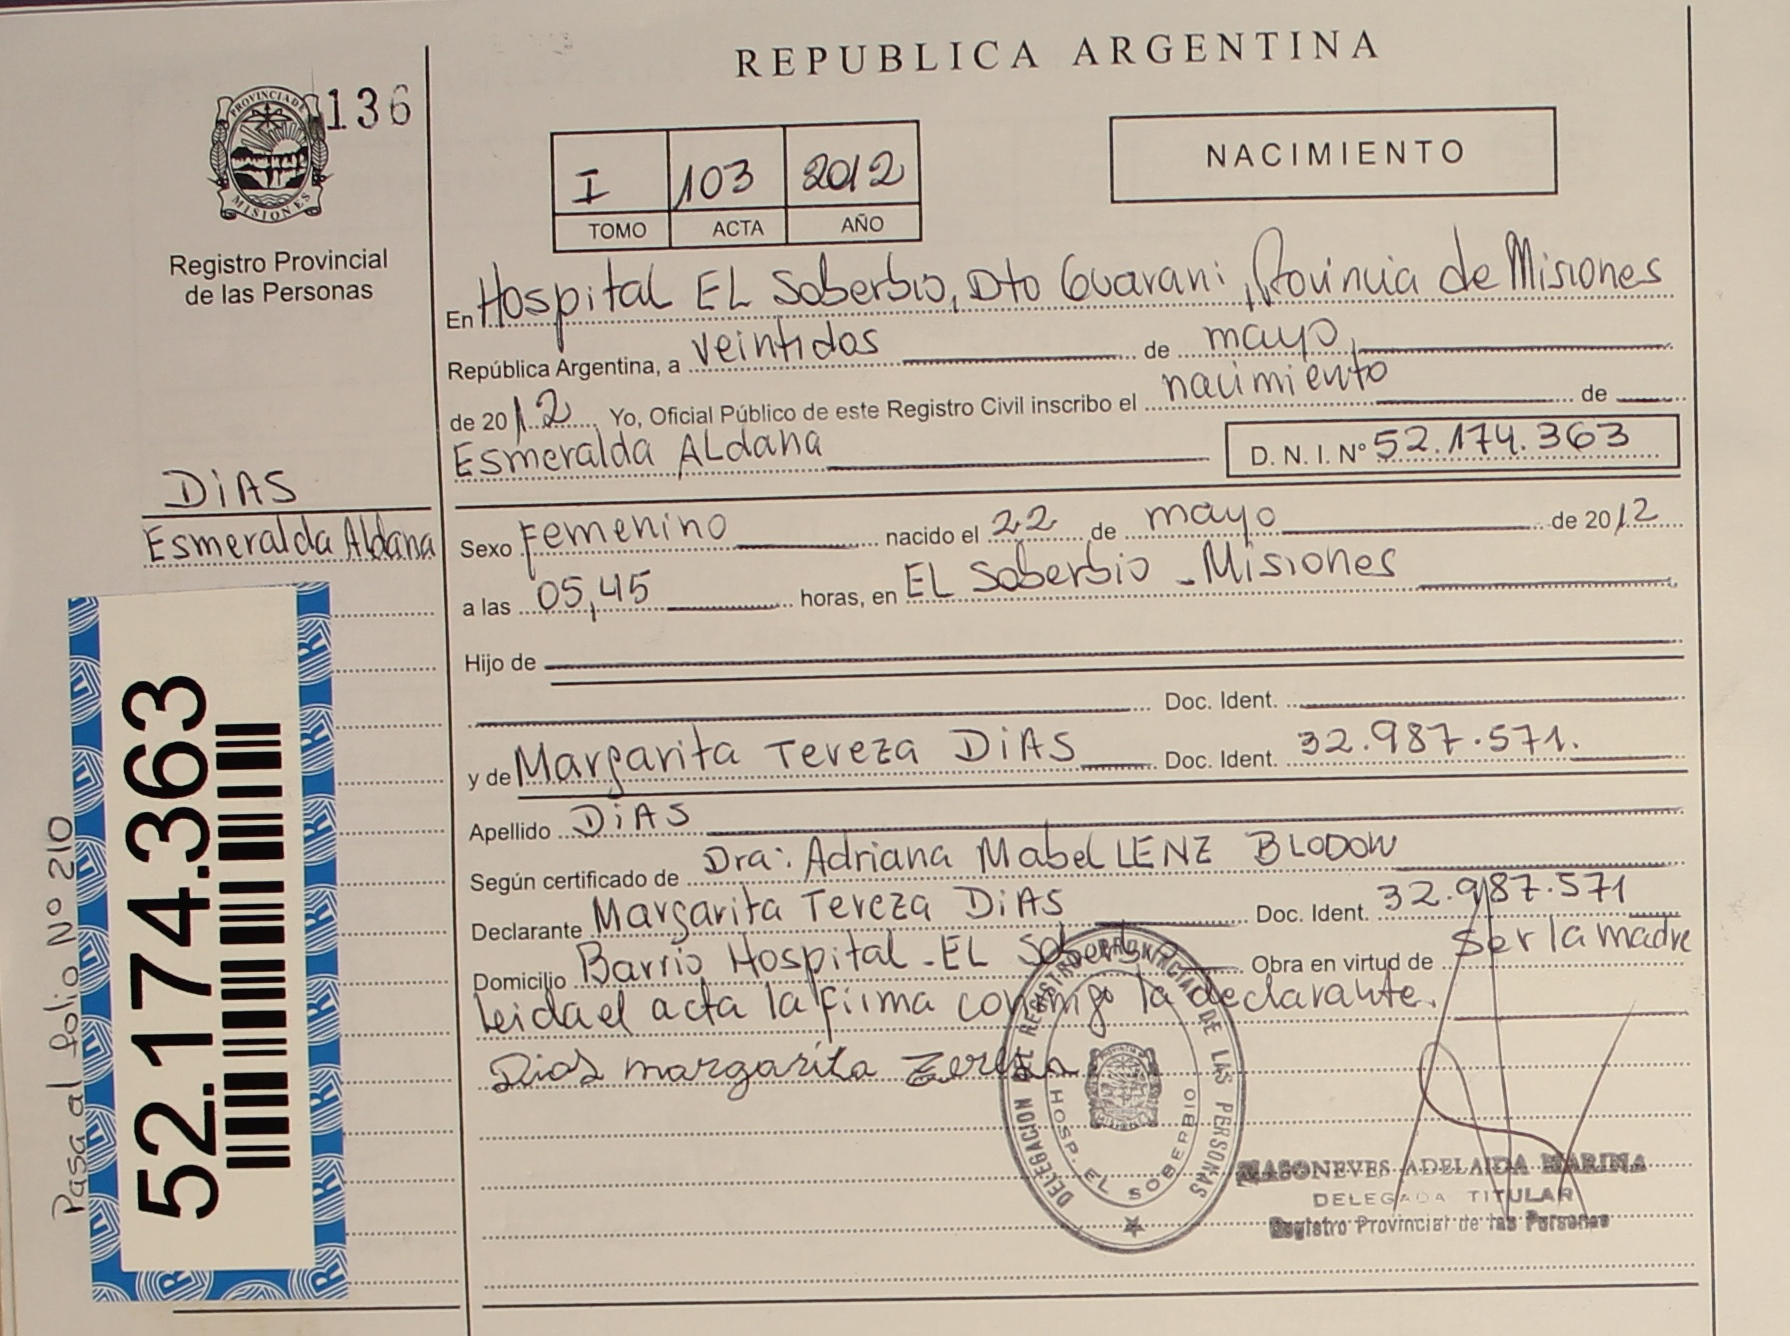 REPUBLICA ARGENTINA
136
PROVINCIA DE MISIONES
Registro Provincial
de las Personas
I 103 2012
TOMO ACTA AÑO
NACIMIENTO
En Hospital EL Soberbio, Dto Guarani, Provincia de Misiones
República Argentina, a veintidos de mayo
de 2012 Yo, Oficial Público de este Registro Civil inscribo el nacimiento de
Esmeralda ALdana D. N. I. Nº 52.174.363
DiAS
Esmeralda Aldana
Sexo Femenino nacido el 22 de mayo de 2012
a las 05,45 horas, en EL Soberbio - Misiones
Hijo de
Doc. Ident.
y de Margarita Tereza DiAS Doc. Ident. 32.987.571.
Apellido DiAS
Según certificado de Dra: Adriana Mabel LENZ BLODOW
Declarante Margarita Tereza DiAS Doc. Ident. 32.987.571
Domicilio Barrio Hospital - EL Soberbio Obra en virtud de ser la madre
leida el acta la firma conmigo la declarante.
Dias margarita Zereza
DELEGACION DE REGISTRO PROVINCIAL DE LAS PERSONAS
HOSP. EL SOBERBIO
MASONEVES ADELAIDA MARINA
DELEGADA TITULAR
Registro Provincial de las Personas
52.174.363
Pasa al folio Nº 210